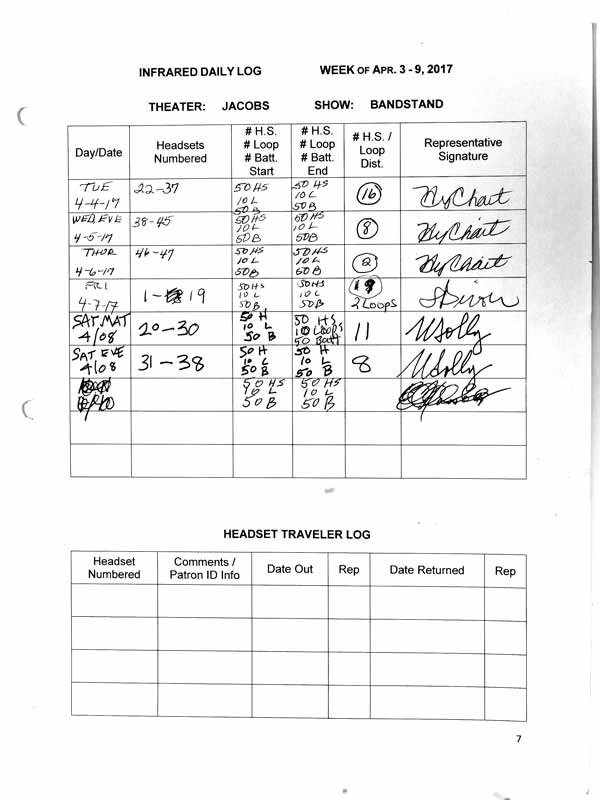 INFRARED DAILY LOG WEEK OF APR. 3 - 9, 2017
THEATER: JACOBS SHOW: BANDSTAND
Day/Date Headsets Numbered # H.S. # Loop # Batt. Start # H.S. # Loop # Batt. End # H.S. / Loop Dist. Representative Signature
TUE 4-4-17 22-37 50 HS 10 L 50 B 50 HS 10 L 50 B 16
WED, EVE 4-5-17 38-45 50 HS 10 L 50 B 50 HS 10 L 50 B 8
THUR 4-6-17 46-47 50 HS 10 L 50 B 50 HS 10 L 50 B 2
FRI 4-7-17 1- 19 50 HS 10 L 50 B 50 HS 10 L 50 B 19 2 Loops
SAT MAT 4/08 20-30 50 H 10 L 50 B 50 HS 10 Loops 50 Batt 11
SAT EVE 4/08 31-38 50 H 10 L 50 B 50 H 10 L 50 B 8
50 HS 10 L 50 B 50 HS 10 L 50 B
HEADSET TRAVELER LOG
Headset Numbered Comments / Patron ID Info Date Out Rep Date Returned Rep
7